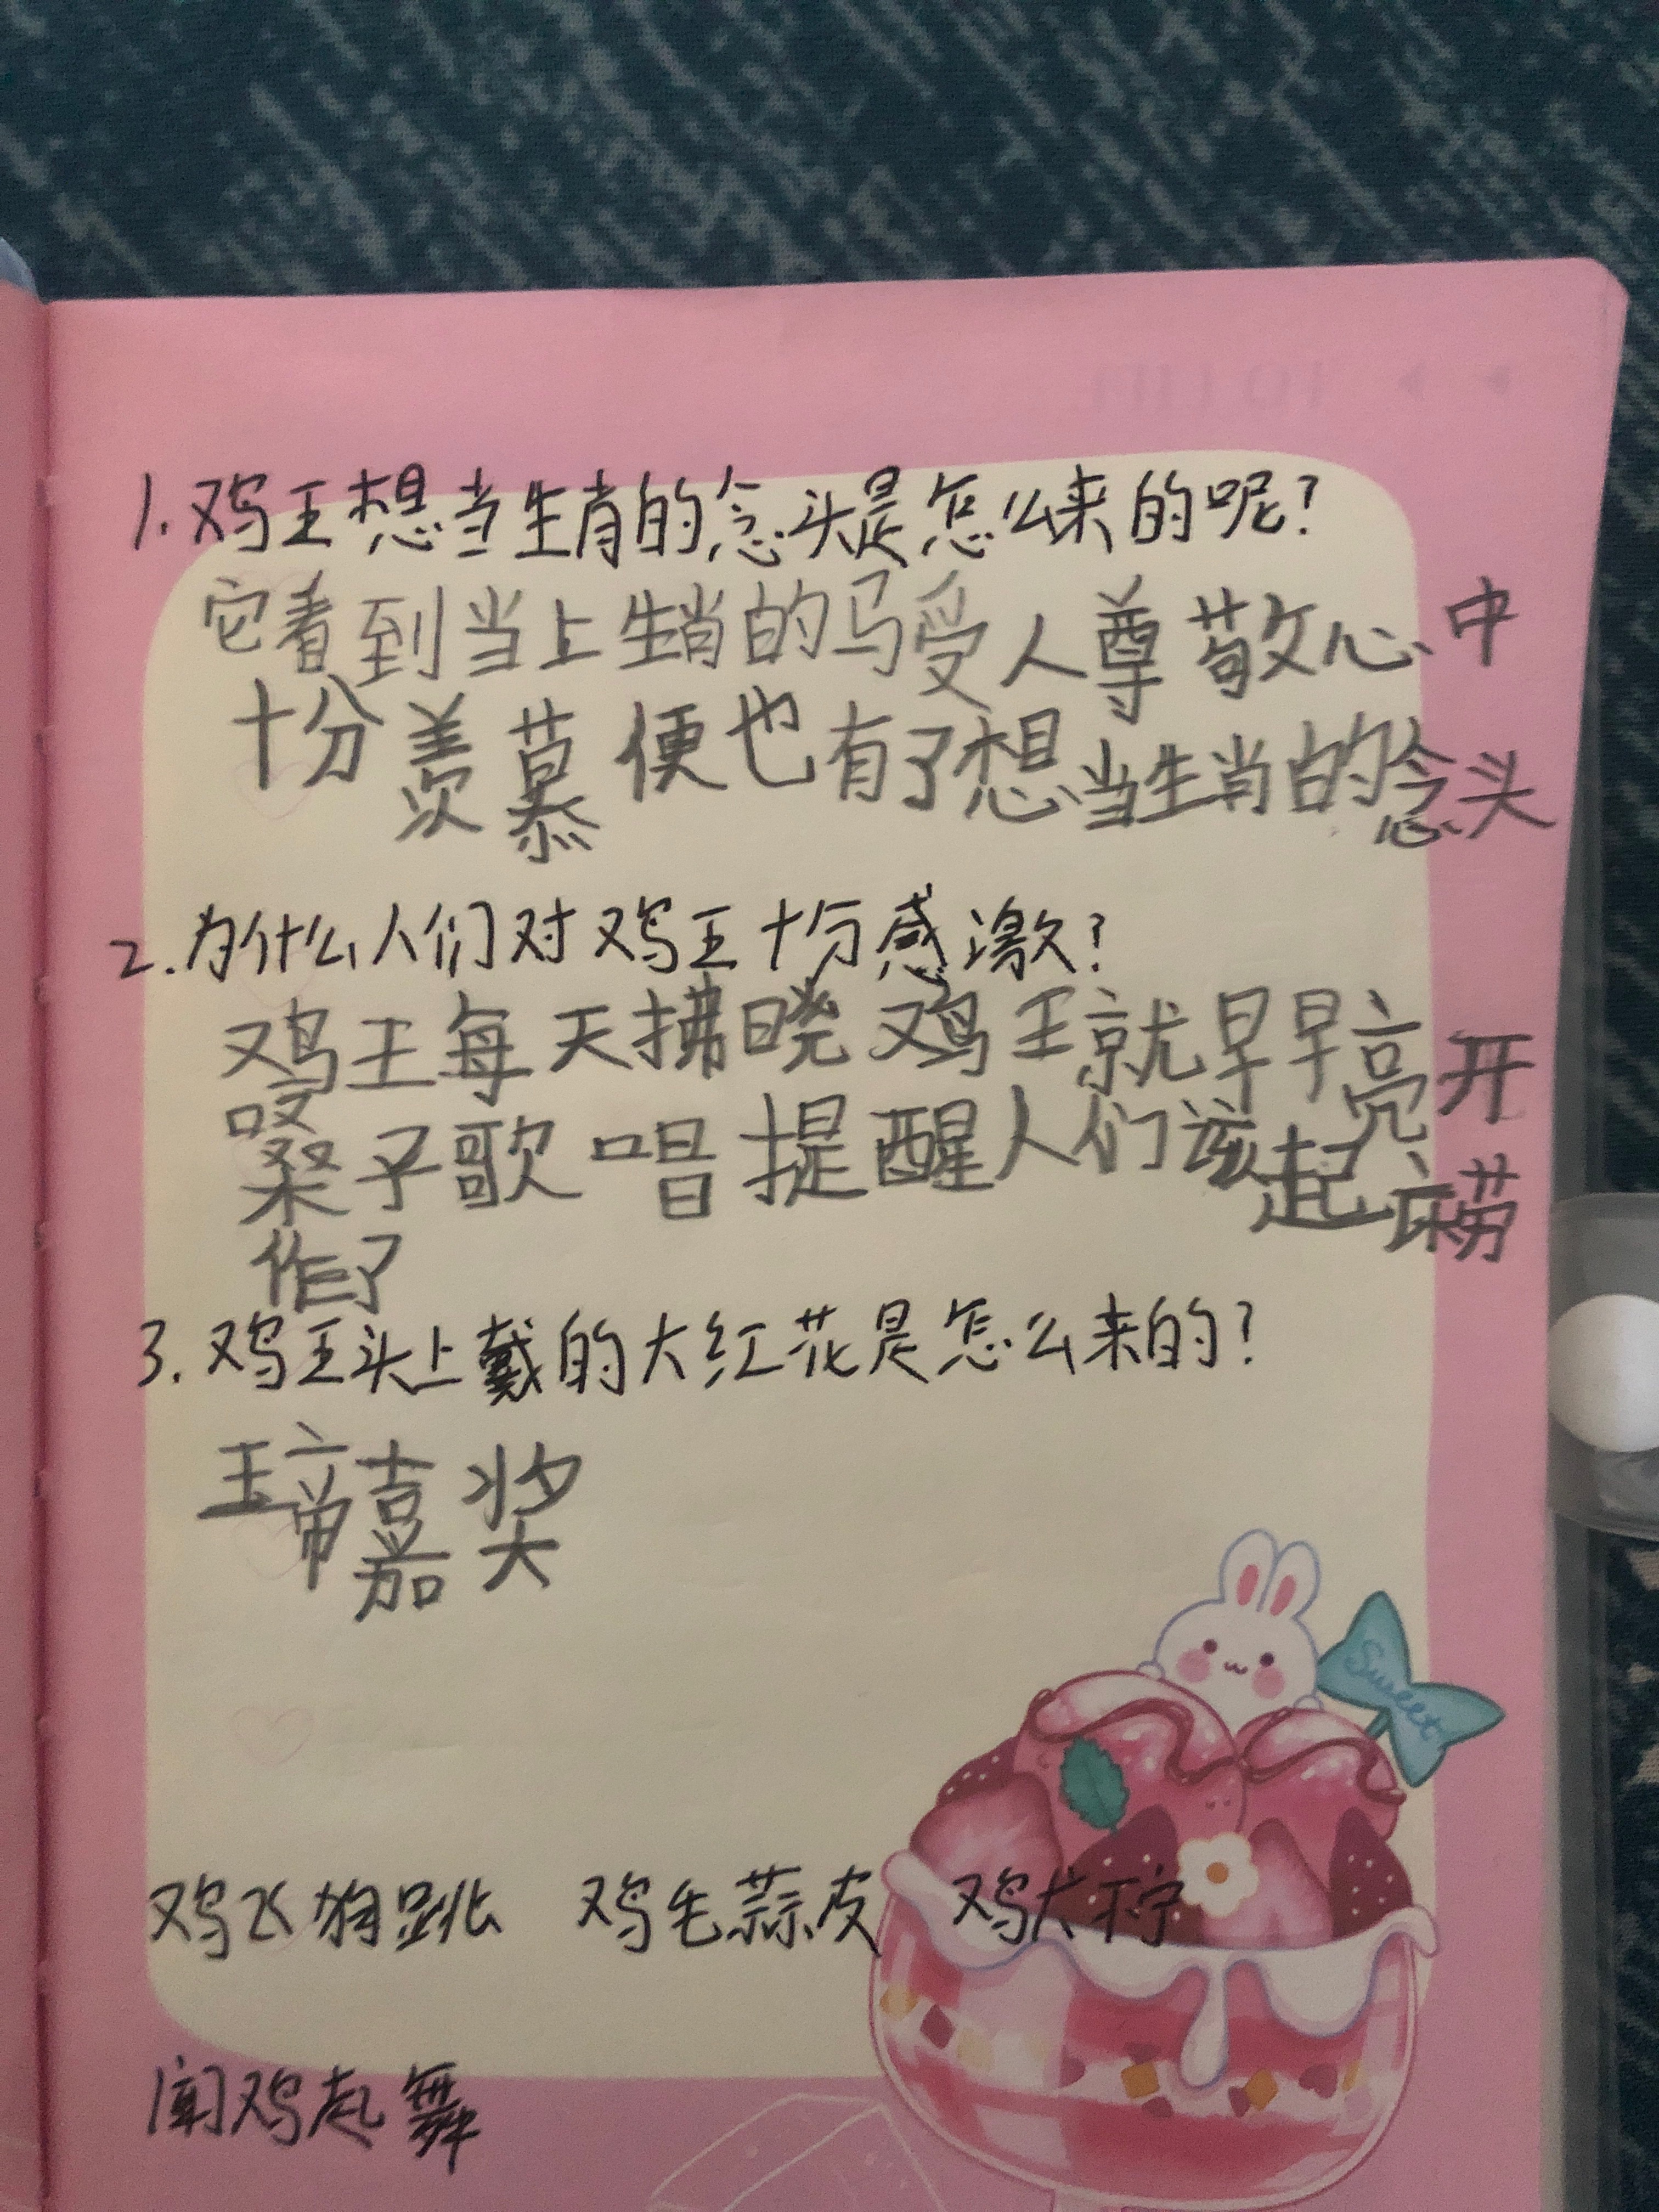 1.鸡王想当生肖的念头是怎么来的呢?
它看到当上生肖的马受人尊敬心中
十分羡慕便也有了想当生肖的念头
2.为什么人们对鸡王十分感激?
鸡王每天拂晓鸡王就早早亮开
嗓子歌唱提醒人们该起床劳
作了
3.鸡王头上戴的大红花是怎么来的?
玉帝嘉奖
Sweet
鸡飞狗跳 鸡毛蒜皮 鸡犬不宁
闻鸡起舞